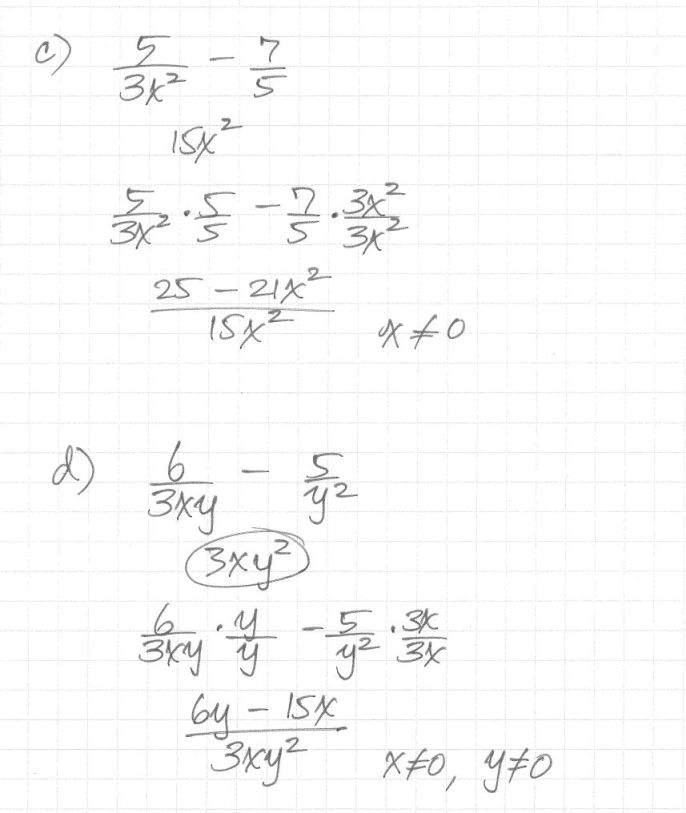 c) 5/3x² - 7/5
15x²
5/3x² · 5/5 - 7/5 · 3x²/3x²
25 - 21x²/15x² x ≠ 0
d) 6/3xy - 5/y²
3xy²
6/3xy · y/y - 5/y² · 3x/3x
6y - 15x/3xy² x≠0, y≠0